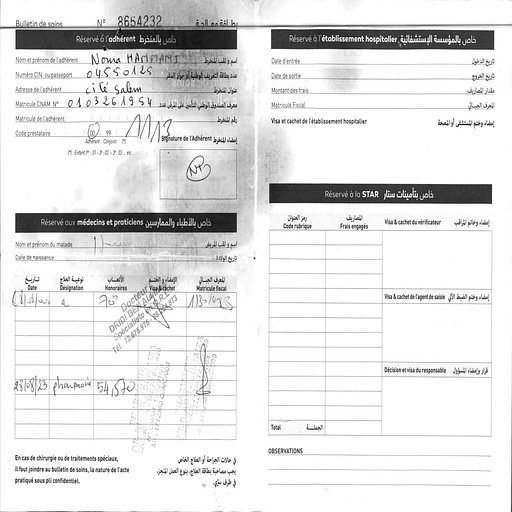 Bulletin de soins N° 8664232 بطاقة معالجة
Réservé à l'adhérent خاص بالمنخرط
Nom et prénom de l'adhérent Noma HAMMAMI اسم و لقب المنخرط
Numéro CIN ou passeport 04550125 عدد بطاقة التعريف الوطنية أو جواز السفر
Adresse de l'adhérent cité Salem عنوان المنخرط
Matricule CNAM N° 0103261954
Matricule de l'adhérent رقم المنخرط
Code prestataire 00 99
Adhérent Conjoint (*)
Signature de l'Adhérent إمضاء المنخرط
(*) : Enfant 1er : 01 - 2e : 02 - 3e : 03 ... etc
Réservé aux médecins et praticiens خاص بالأطباء والممارسين
Nom et prénom du malade اسم و لقب المريض
Date de naissance تاريخ الولادة
تاريخ Date
نوعية العلاج Désignation
الأتعاب Honoraires
الإمضاء و الختم Visa & cachet
المعرف الجبائي Matricule fiscal
Docteur
DRIDI
Spécialiste
28/08/23 pharmacie 54,570
En cas de chirurgie ou de traitements spéciaux,
il faut joindre au bulletin de soins, la nature de l'acte
pratiqué sous pli confidentiel.
في حالات الجراحة أو العلاج الخاص
يجب مصاحبة بطاقة العلاج، بنوع العمل المنجز،
في ظرف سري.
Réservé à l'établissement hospitalier خاص بالمؤسسة الإستشفائية
Date d'entrée تاريخ الدخول
Date de sortie تاريخ الخروج
Montant des frais مقدار المصاريف
Matricule Fiscal المعرف الجبائي
Visa et cachet de l'établissement hospitalier إمضاء وختم المستشفى أو المصحة
Réservé à la STAR خاص بتأمينات ستار
رمز العنوان Code rubrique
المصاريف Frais engagés
Visa & cachet du vérificateur إمضاء وخاتم المراقب
Visa & cachet de l'agent de saisie إمضاء وختم الضبط الآلي
Décision et visa du responsable قرار وإمضاء المسؤول
Total الجملة
OBSERVATIONS